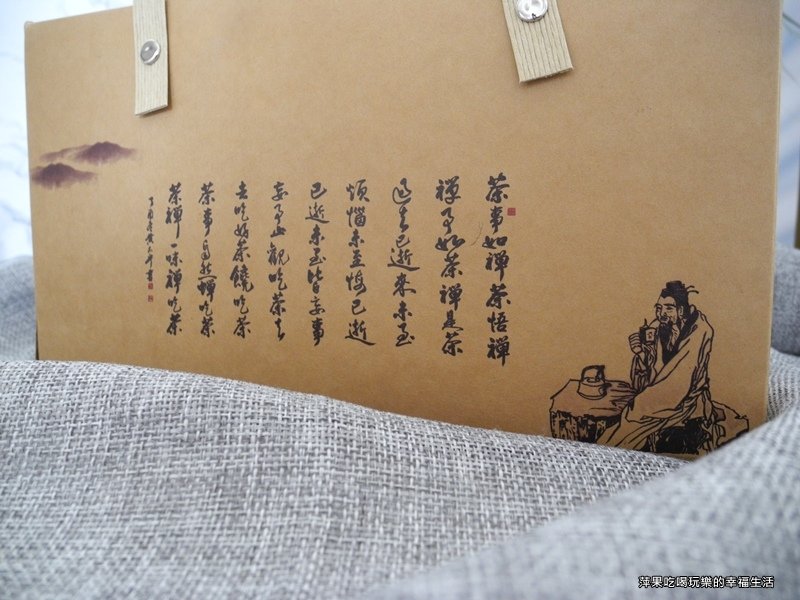 茶事如禪茶悟禪
禪事如茶禪是茶
過去已逝來未至
煩惱未至悔已逝
已逝未至皆妄事
妄事止觀吃茶去
去吃好茶饒吃茶
茶事自然禪吃茶
茶禪一味禪吃茶
丁酉冬
萍果吃喝玩樂的幸福生活